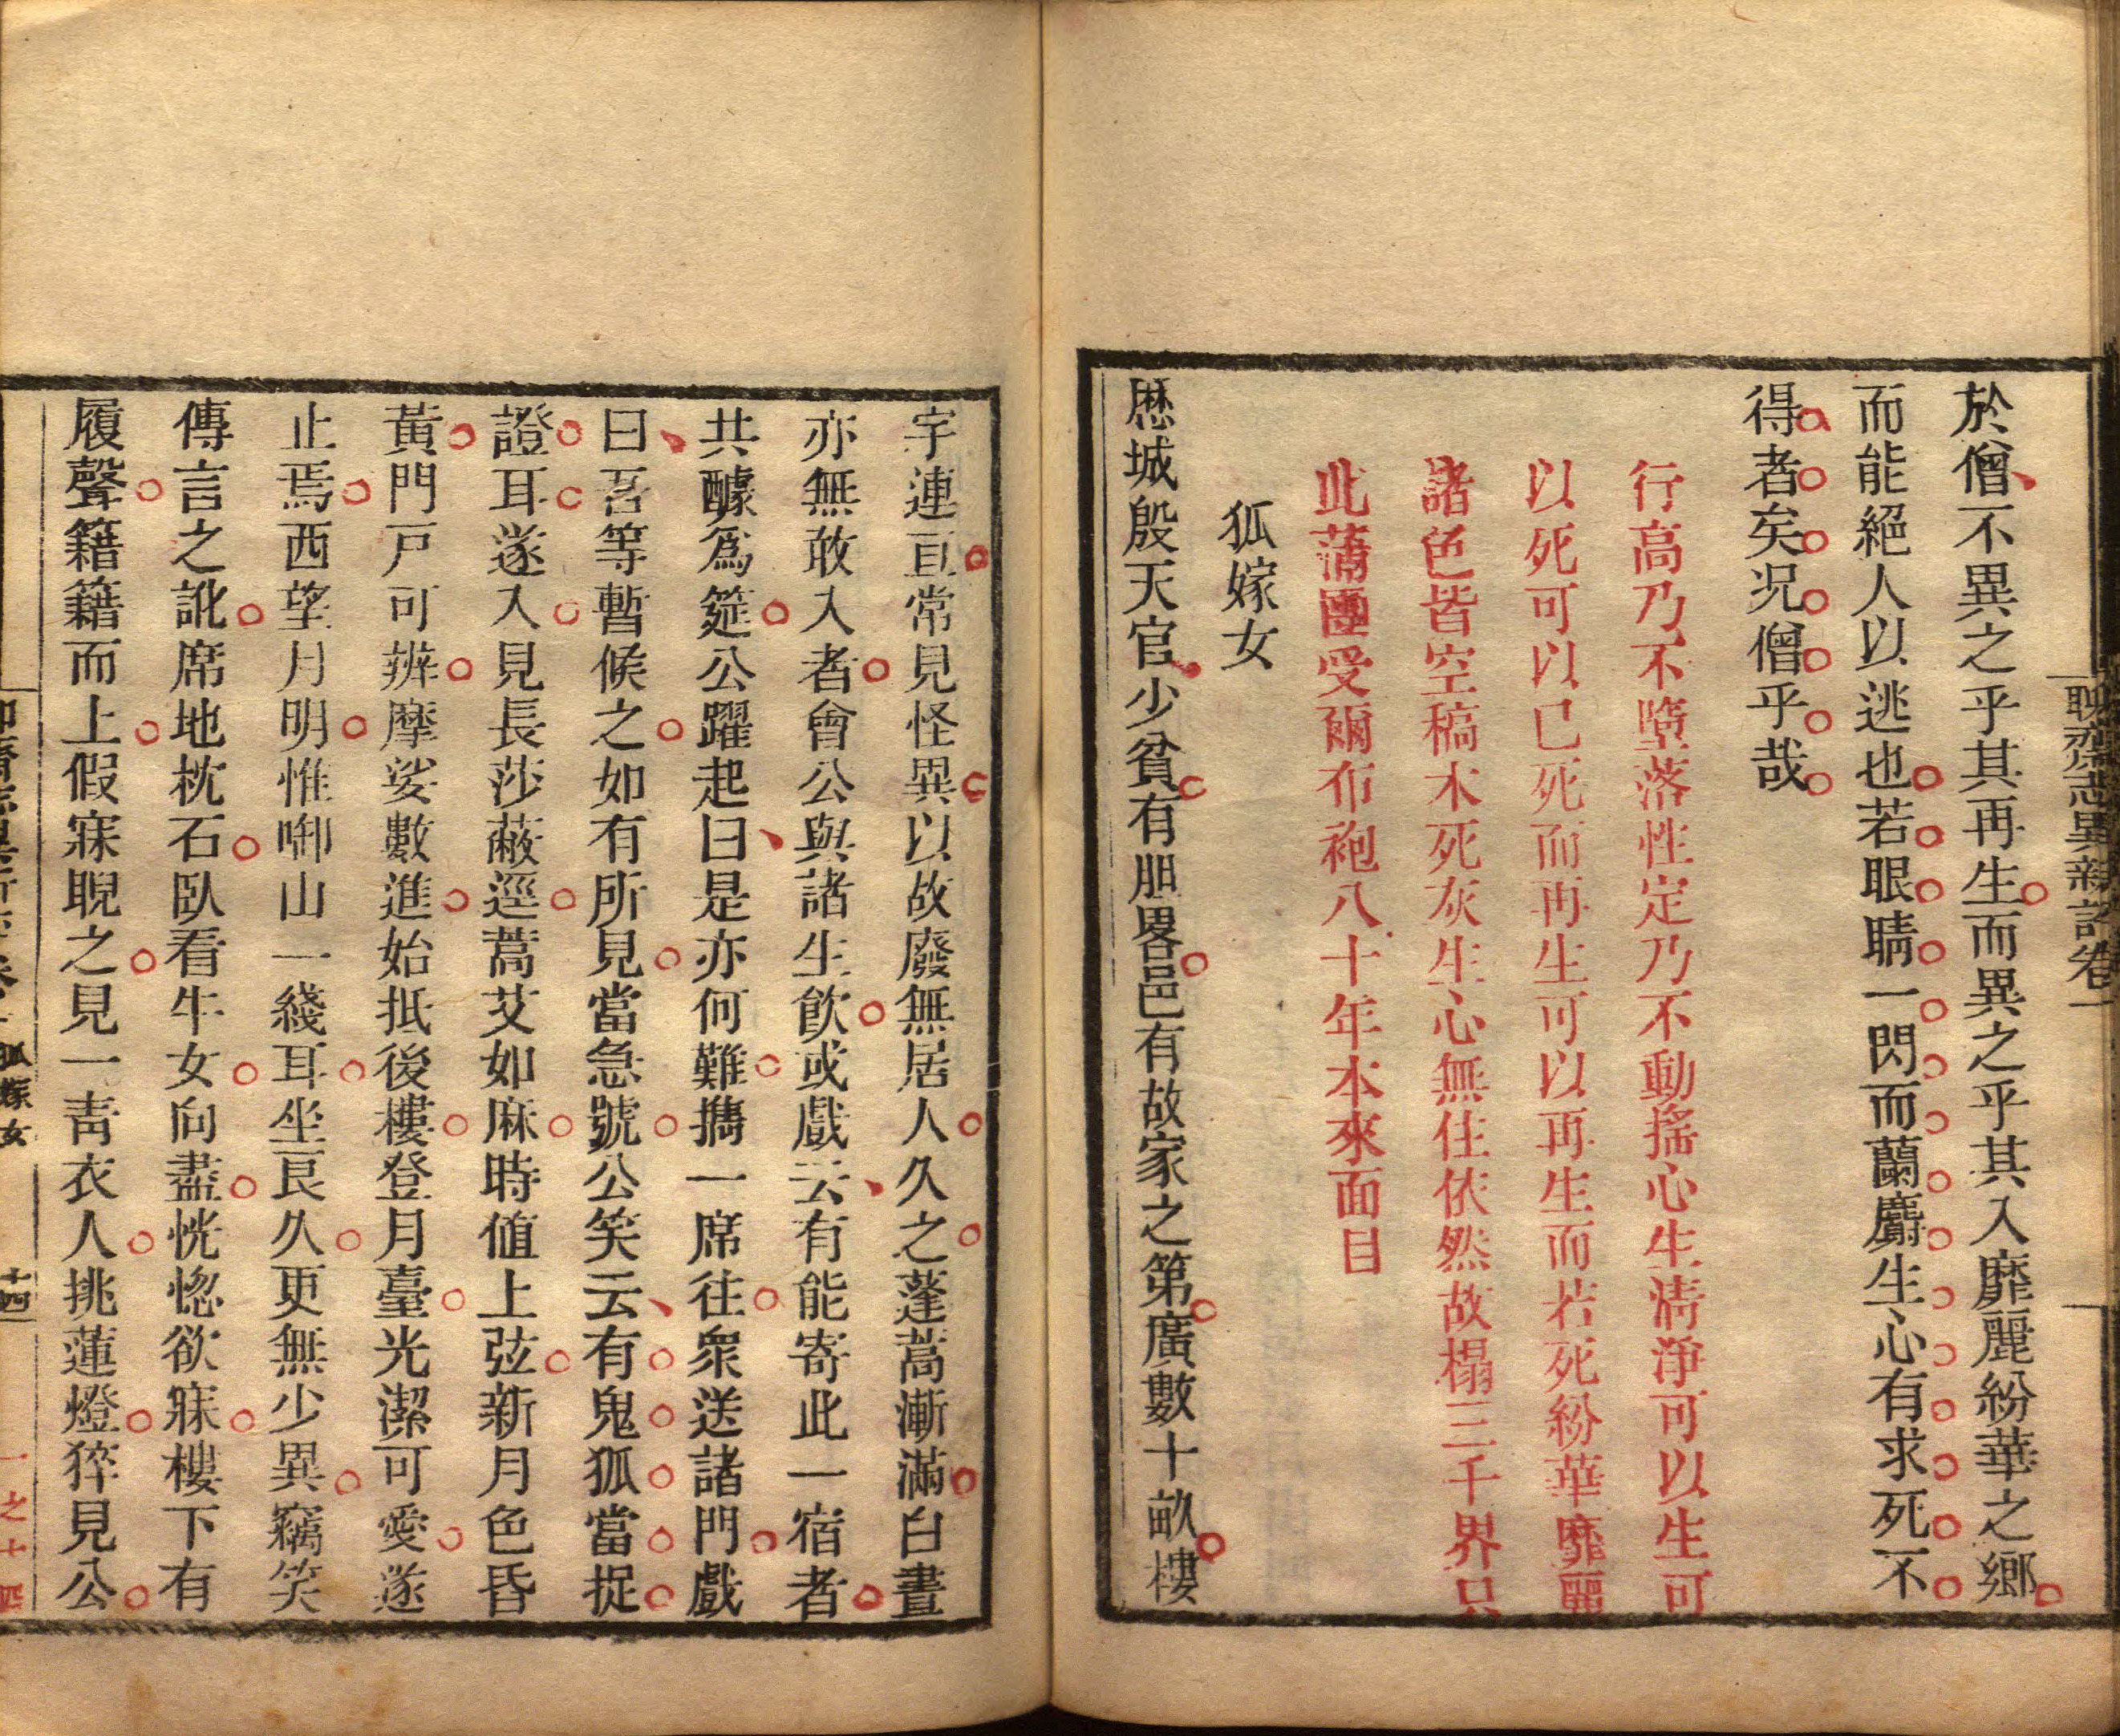 聊齋志異新評卷一
於僧不異之乎其再生而異之乎其入靡麗紛華之鄉
而能絕人以逃也若眼睛一閃而蘭麝生心有求死不
得者矣况僧乎哉
行高乃不墮落性定乃不動搖心生淸淨可以生可
以死可以已死而再生可以再生而若死紛華靡麗
諸色皆空稿木死灰生心無住依然故榻三千界只
此蒲團受爾布袍八十年本來面目
狐嫁女
歷城殷天官少貧有胆畧邑有故家之第廣數十畝樓
宇連亘常見怪異以故廢無居人久之蓬蒿漸滿白晝
亦無敢入者會公與諸生飮或戲云有能寄此一宿者
共醵爲筵公躍起曰是亦何難攜一席往衆送諸門戲
曰吾等暫候之如有所見當急號公笑云有鬼狐當捉
證耳遂入見長莎蔽逕蒿艾如麻時値上弦新月色昏
黃門戸可辨摩娑數進始抵後樓登月臺光潔可愛遂
止焉西望月明惟啣山一綫耳坐良久更無少異竊笑
傳言之訛席地枕石臥看牛女向盡恍惚欲寐樓下有
履聲籍籍而上假寐睨之見一靑衣人挑蓮燈猝見公
狐嫁女
十四
一之十四